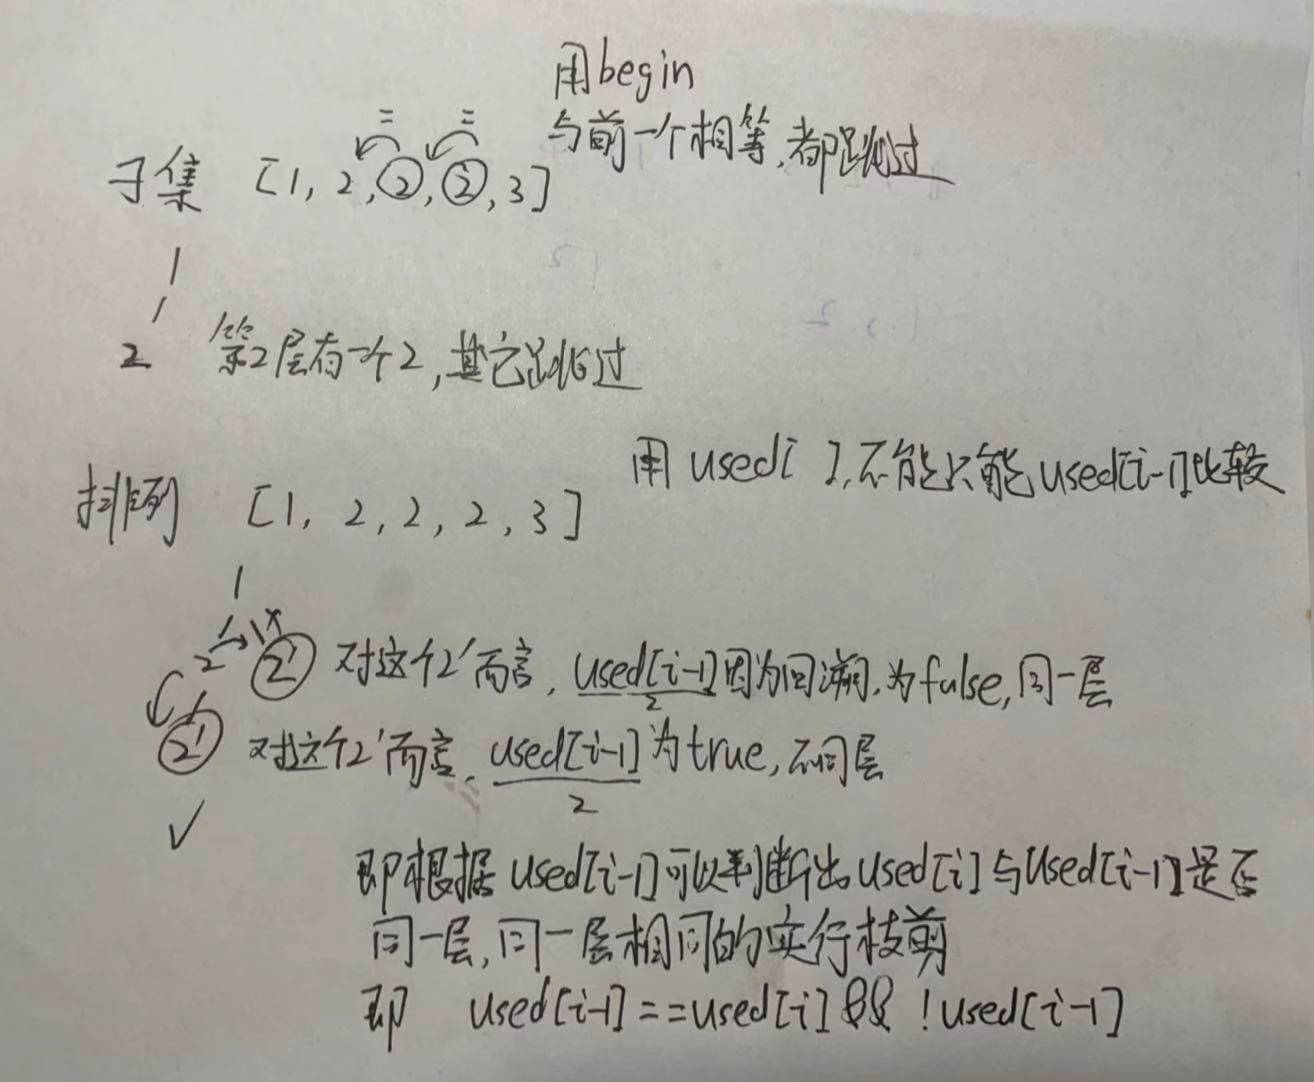 用begin
与前一个相等,都跳过
= =
子集 [1, 2, 2, 2, 3]
1
2 第2层有一个2,其它跳过
用 used[ ],不能只能used[i-1]比较
排列 [1, 2, 2, 2, 3]
1
2 2' 对这个2'而言, used[i-1]因为回溯,为false,同一层
2
2' 对这个2'而言, used[i-1]为true,不同层
2
即根据used[i-1]可以判断出used[i]与used[i-1]是否
同一层,同一层相同的实行枝剪
即 used[i-1]==used[i] && !used[i-1]